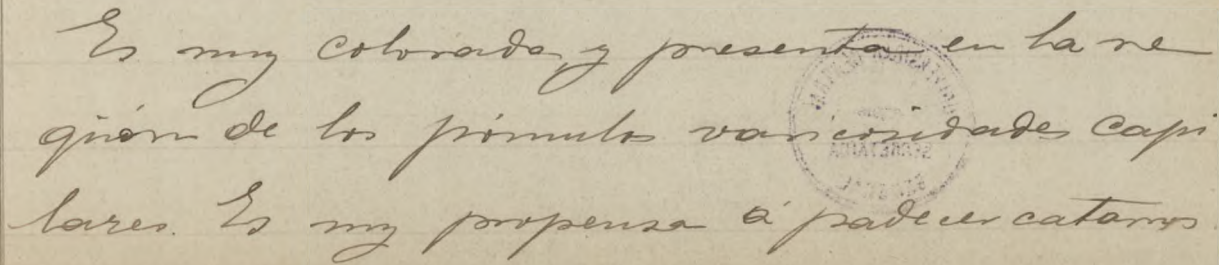 Es muy colorada, y presenta en la re
gión de los pómulos varicosidades capi
lares. Es muy propensa á padecer catarros.
SECRETARIA
GENERAL